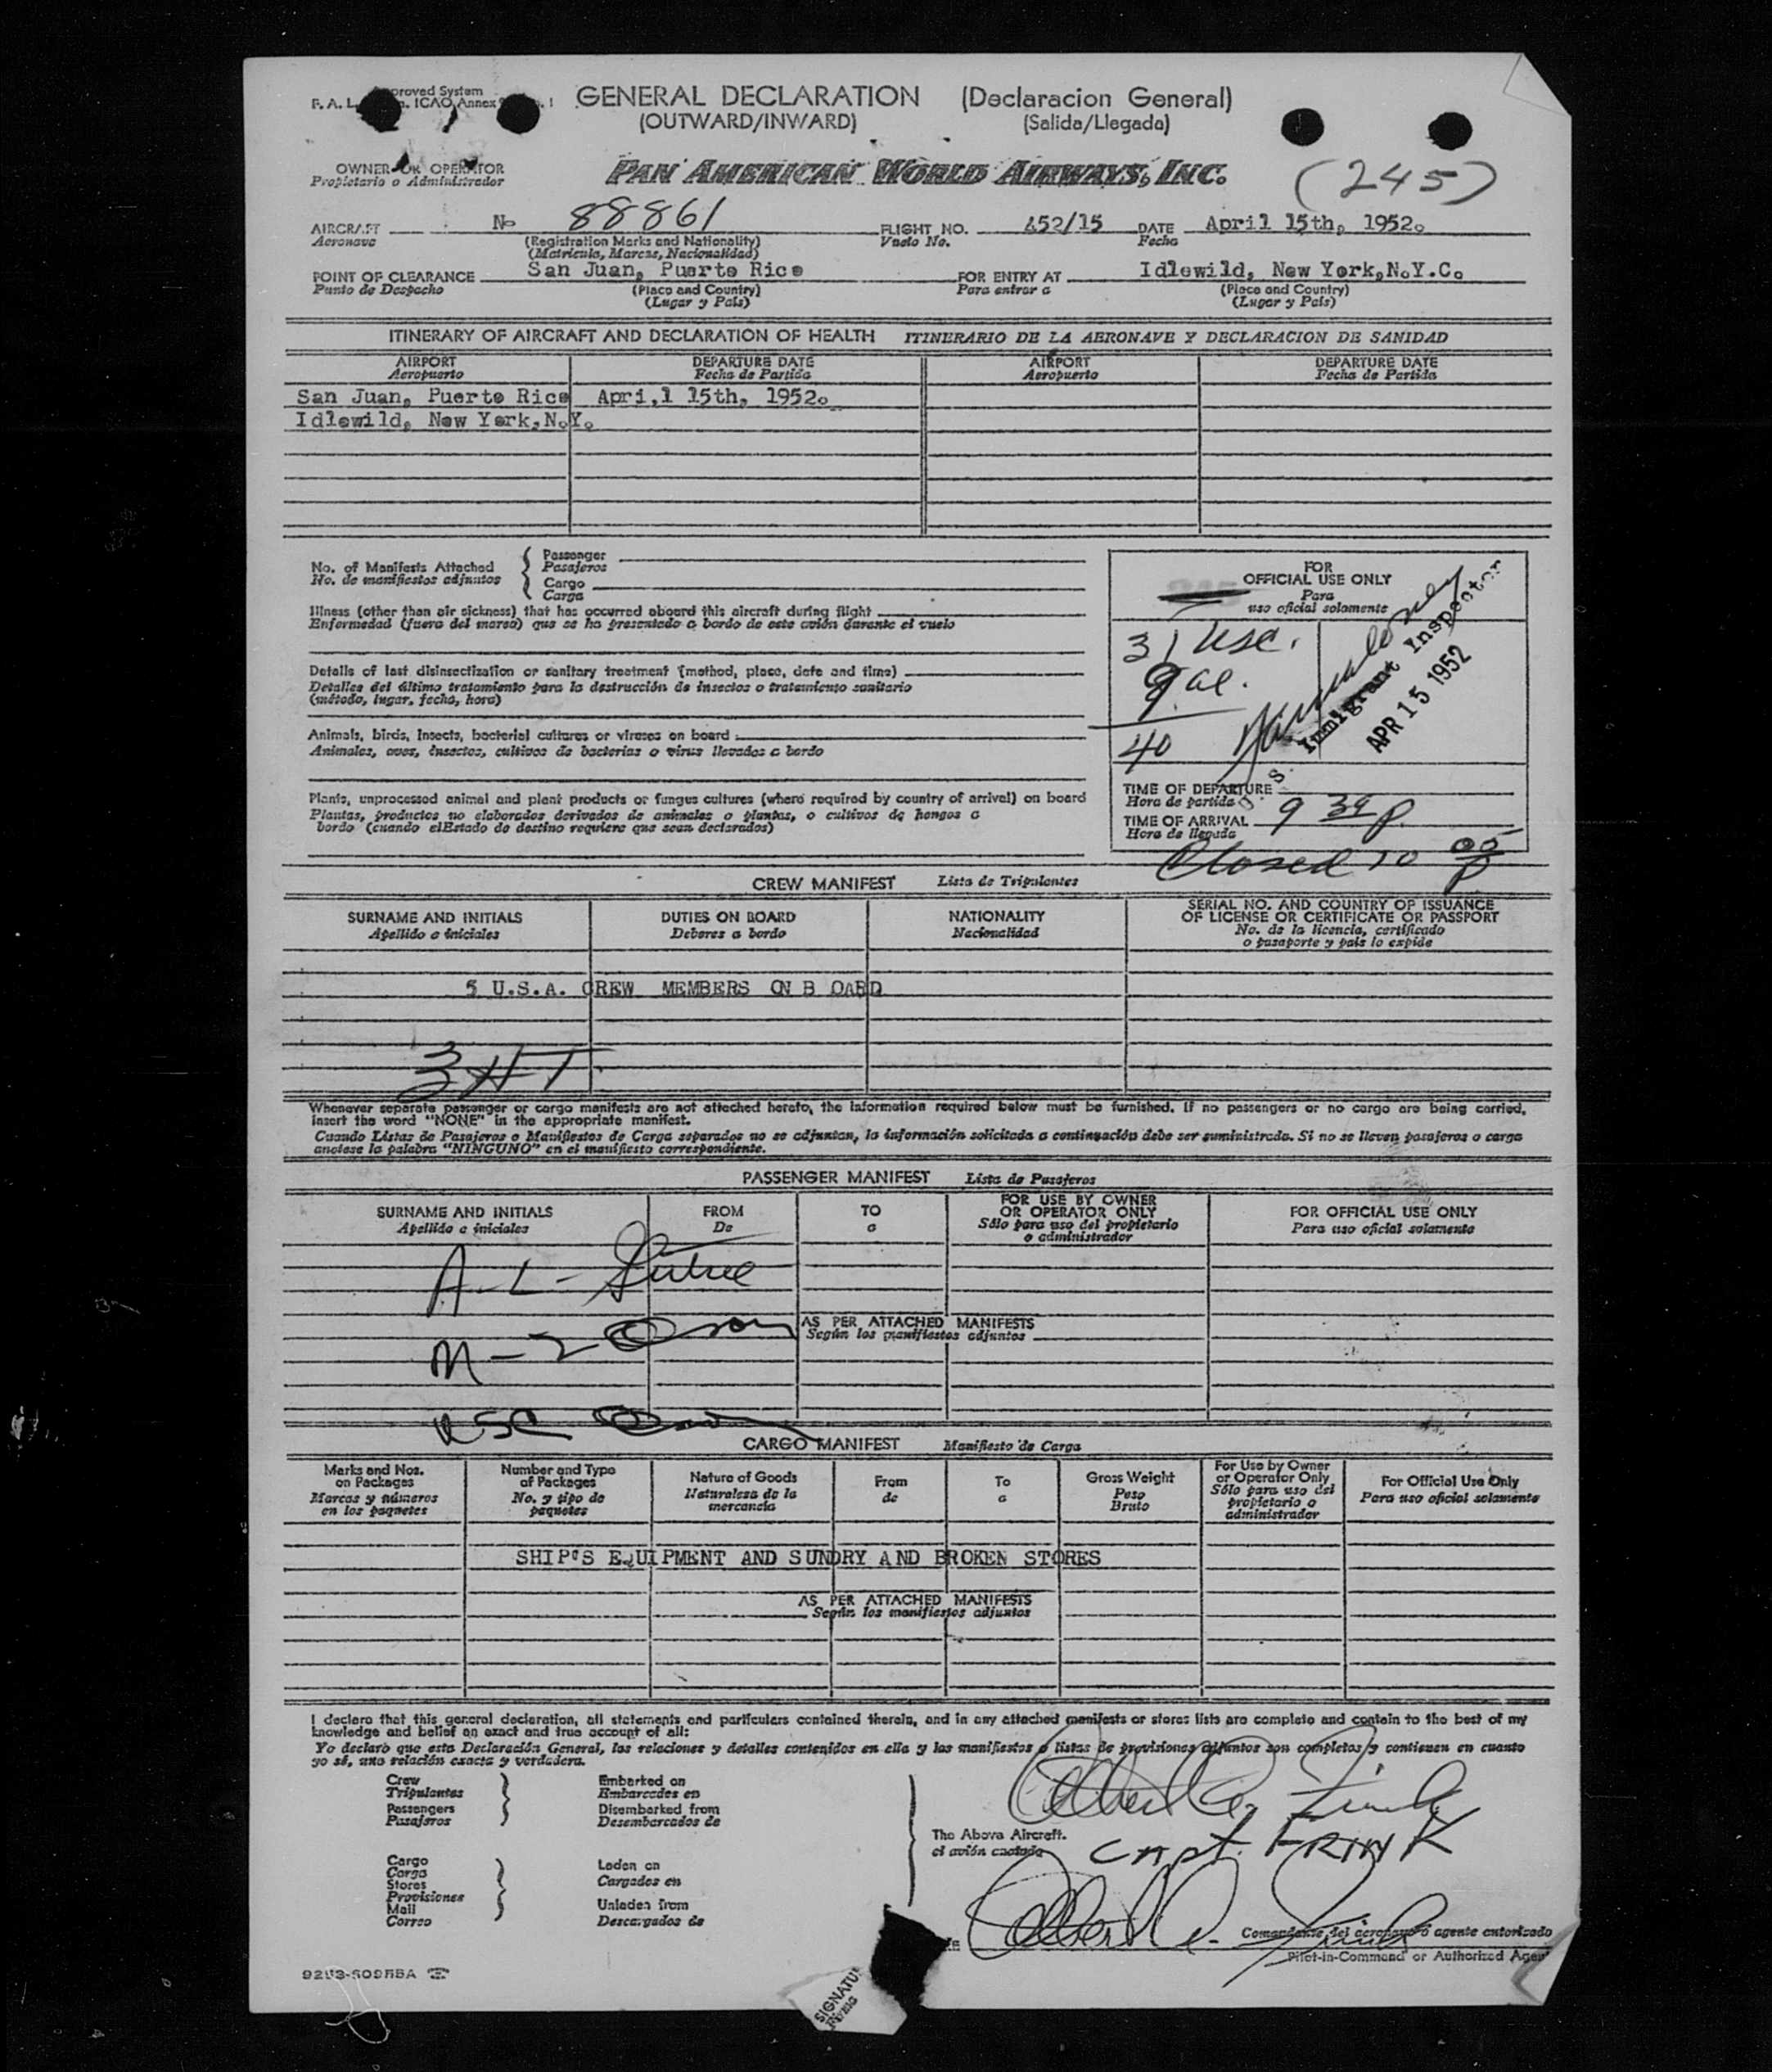 GENERAL DECLARATION (Declaracion General)
(OUTWARD/INWARD) (Salida/Llegada)
OWNER OR OPERATOR
Propietario o Administrador
PAN AMERICAN WORLD AIRWAYS, INC.
(245)
AIRCRAFT No 88861 FLIGHT NO. 452/15 DATE April 15th, 1952.
Aeronave (Registration Marks and Nationality) Vuelo No. Fecha
(Matricula, Marcas, Nacionalidad)
POINT OF CLEARANCE San Juan, Puerto Rico FOR ENTRY AT Idlewild, New York,N.Y.C.
Punto de Despacho (Place and Country) Para entrar a (Place and Country)
(Lugar y País) (Lugar y País)
ITINERARY OF AIRCRAFT AND DECLARATION OF HEALTH ITINERARIO DE LA AERONAVE Y DECLARACION DE SANIDAD
AIRPORT DEPARTURE DATE AIRPORT DEPARTURE DATE
Aeropuerto Fecha de Partida Aeropuerto Fecha de Partida
San Juan, Puerto Rico Apri,l 15th, 1952.
Idlewild, New York,N.Y.
No. of Manifests Attached
No. de manifiestos adjuntos
Passenger
Pasajeros
Cargo
Carga
Illness (other than air sickness) that has occurred aboard this aircraft during flight
Enfermedad (fuera del mareo) que se ha presentado a bordo de este avión durante el vuelo
Details of last disinsectization or sanitary treatment (method, place, date and time)
Detalles del último tratamiento para la destrucción de insectos o tratamiento sanitario
(método, lugar, fecha, hora)
Animals, birds, insects, bacterial cultures or viruses on board
Animales, aves, insectos, cultivos de bacterias o virus llevados a bordo
Plants, unprocessed animal and plant products or fungus cultures (where required by country of arrival) on board
Plantas, productos no elaborados derivados de animales o plantas, o cultivos de hongos a
bordo (cuando elEstado de destino requiere que sean declarados)
FOR
OFFICIAL USE ONLY
Para
uso oficial solamente
31 usc.
9 al.
40
U. S. Immigrant Inspector
APR 15 1952
TIME OF DEPARTURE
Hora de partida
TIME OF ARRIVAL 9 39 p.
Hora de llegada
Closed 10 05 p
CREW MANIFEST Lista de Tripulantes
SURNAME AND INITIALS DUTIES ON BOARD NATIONALITY SERIAL NO. AND COUNTRY OF ISSUANCE
Apellido e iniciales Deberes a bordo Nacionalidad OF LICENSE OR CERTIFICATE OR PASSPORT
No. de la licencia, certificado
o pasaporte y país lo expide
5 U.S.A. CREW MEMBERS ON B OARD
3HT
Whenever separate passenger or cargo manifests are not attached hereto, the information required below must be furnished. If no passengers or no cargo are being carried,
insert the word "NONE" in the appropriate manifest.
Cuando Listas de Pasajeros o Manifiestos de Carga separados no se adjuntan, la información solicitada a continuación debe ser suministrada. Si no se llevan pasajeros o carga
anotese la palabra "NINGUNO" en el manifiesto correspondiente.
PASSENGER MANIFEST Lista de Pasajeros
SURNAME AND INITIALS FROM TO FOR USE BY OWNER FOR OFFICIAL USE ONLY
Apellido e iniciales De a OR OPERATOR ONLY Para uso oficial solamente
Sólo para uso del propietario
o administrador
A-L-
AS PER ATTACHED MANIFESTS
Según los manifiestos adjuntos
M-2
CARGO MANIFEST Manifiesto de Carga
Marks and Nos. on Packages
Marcas y números en los paquetes
Number and Type of Packages
No. y tipo de paquetes
Nature of Goods
Naturaleza de la mercancía
From
de
To
a
Gross Weight
Peso Bruto
For Use by Owner or Operator Only
Sólo para uso del propietario o administrador
For Official Use Only
Para uso oficial solamente
SHIP'S EQUIPMENT AND SUNDRY AND BROKEN STORES
AS PER ATTACHED MANIFESTS
Según los manifiestos adjuntos
I declare that this general declaration, all statements and particulars contained therein, and in any attached manifests or stores lists are complete and contain to the best of my
knowledge and belief an exact and true account of all:
Yo declaro que esta Declaración General, las relaciones y detalles contenidos en ella y los manifiestos o listas de provisiones adjuntos son completos y contienen en cuanto
yo sé, una relación exacta y verdadera.
Crew Embarked on
Tripulantes Embarcados en
Passengers Disembarked from
Pasajeros Desembarcados de
The Above Aircraft.
el avión citado
CAPT. FRINK
Cargo Laden on
Carga Cargados en
Stores
Provisiones
Mail Unladen from
Correo Descargados de
Comandante del aeronave o agente autorizado
Pilot-in-Command or Authorized Agent
SIGNATU